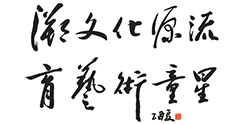 溯文化源流
育藝術童星